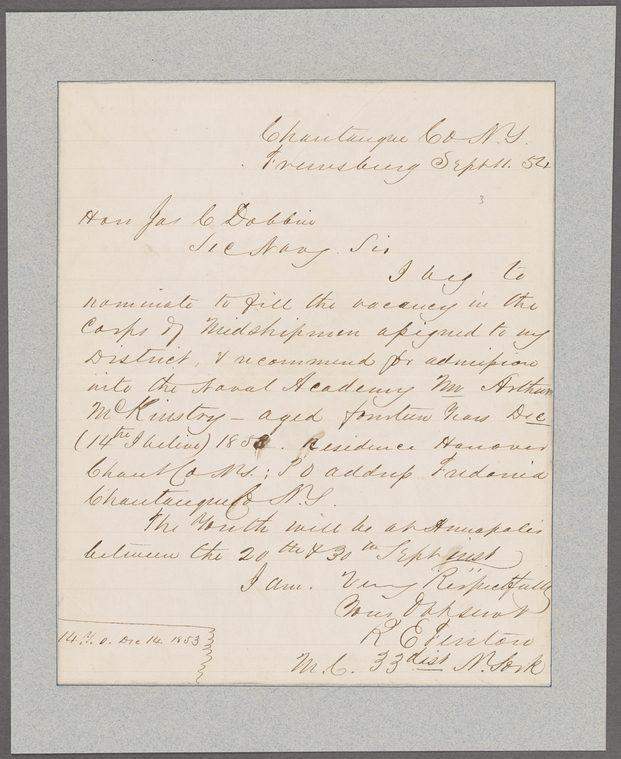 Chautauque Co N.Y.
Frewsburg Sept 11. 54
Hon Jas C Dobbin
Sec Navy. Sir
I beg to
nominate to fill the vacancy in the
Corps of Midshipmen assigned to my
District, & recommend for admission
into the Naval Academy Mr Arthur
McKinstry - aged fourteen years Dec
(14th I belive) 1853. Residence Hanover
Chaut Co N.Y.; P O address Fredonia
Chautauque Co N.Y
The Youth will be at Annapolis
between the 20th & 30th Sept inst
I am. Very Respectfully
Your Obt servt
R E Fenton
M.C. 33 dist N. York
14 Y. o. Dec 14. 1853